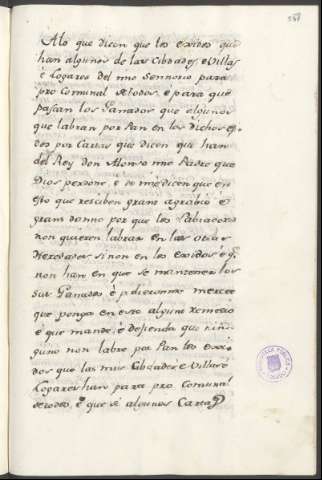 Alo que dicen que los exidos que
han algunos de las Cibdades, e Villas
e Logares del mio Sennorio para
pro Comunal de todos, e para que
pascan los Ganados que algunos
que labran por Pan en los dichos exi-
dos por Cartas que dicen que han
del Rey don Alonso mio Padre que
Dios perdone, e de mi e dicen que en
esto que resciben grand agrabio e
grand danno por que los Labradores
non quieren labrar en las otras
Heredades si non en los exidos e q.
non han en que se mantener los
sus Ganados e pidieronme merced
que ponga en esto algund remedio
e que mande, e defienda que nin-
guno non labre por Pan los exi-
dos que las mis Cibdades e Villas e
Logares han para pro comunal
de todos, e que si algunos Cartas